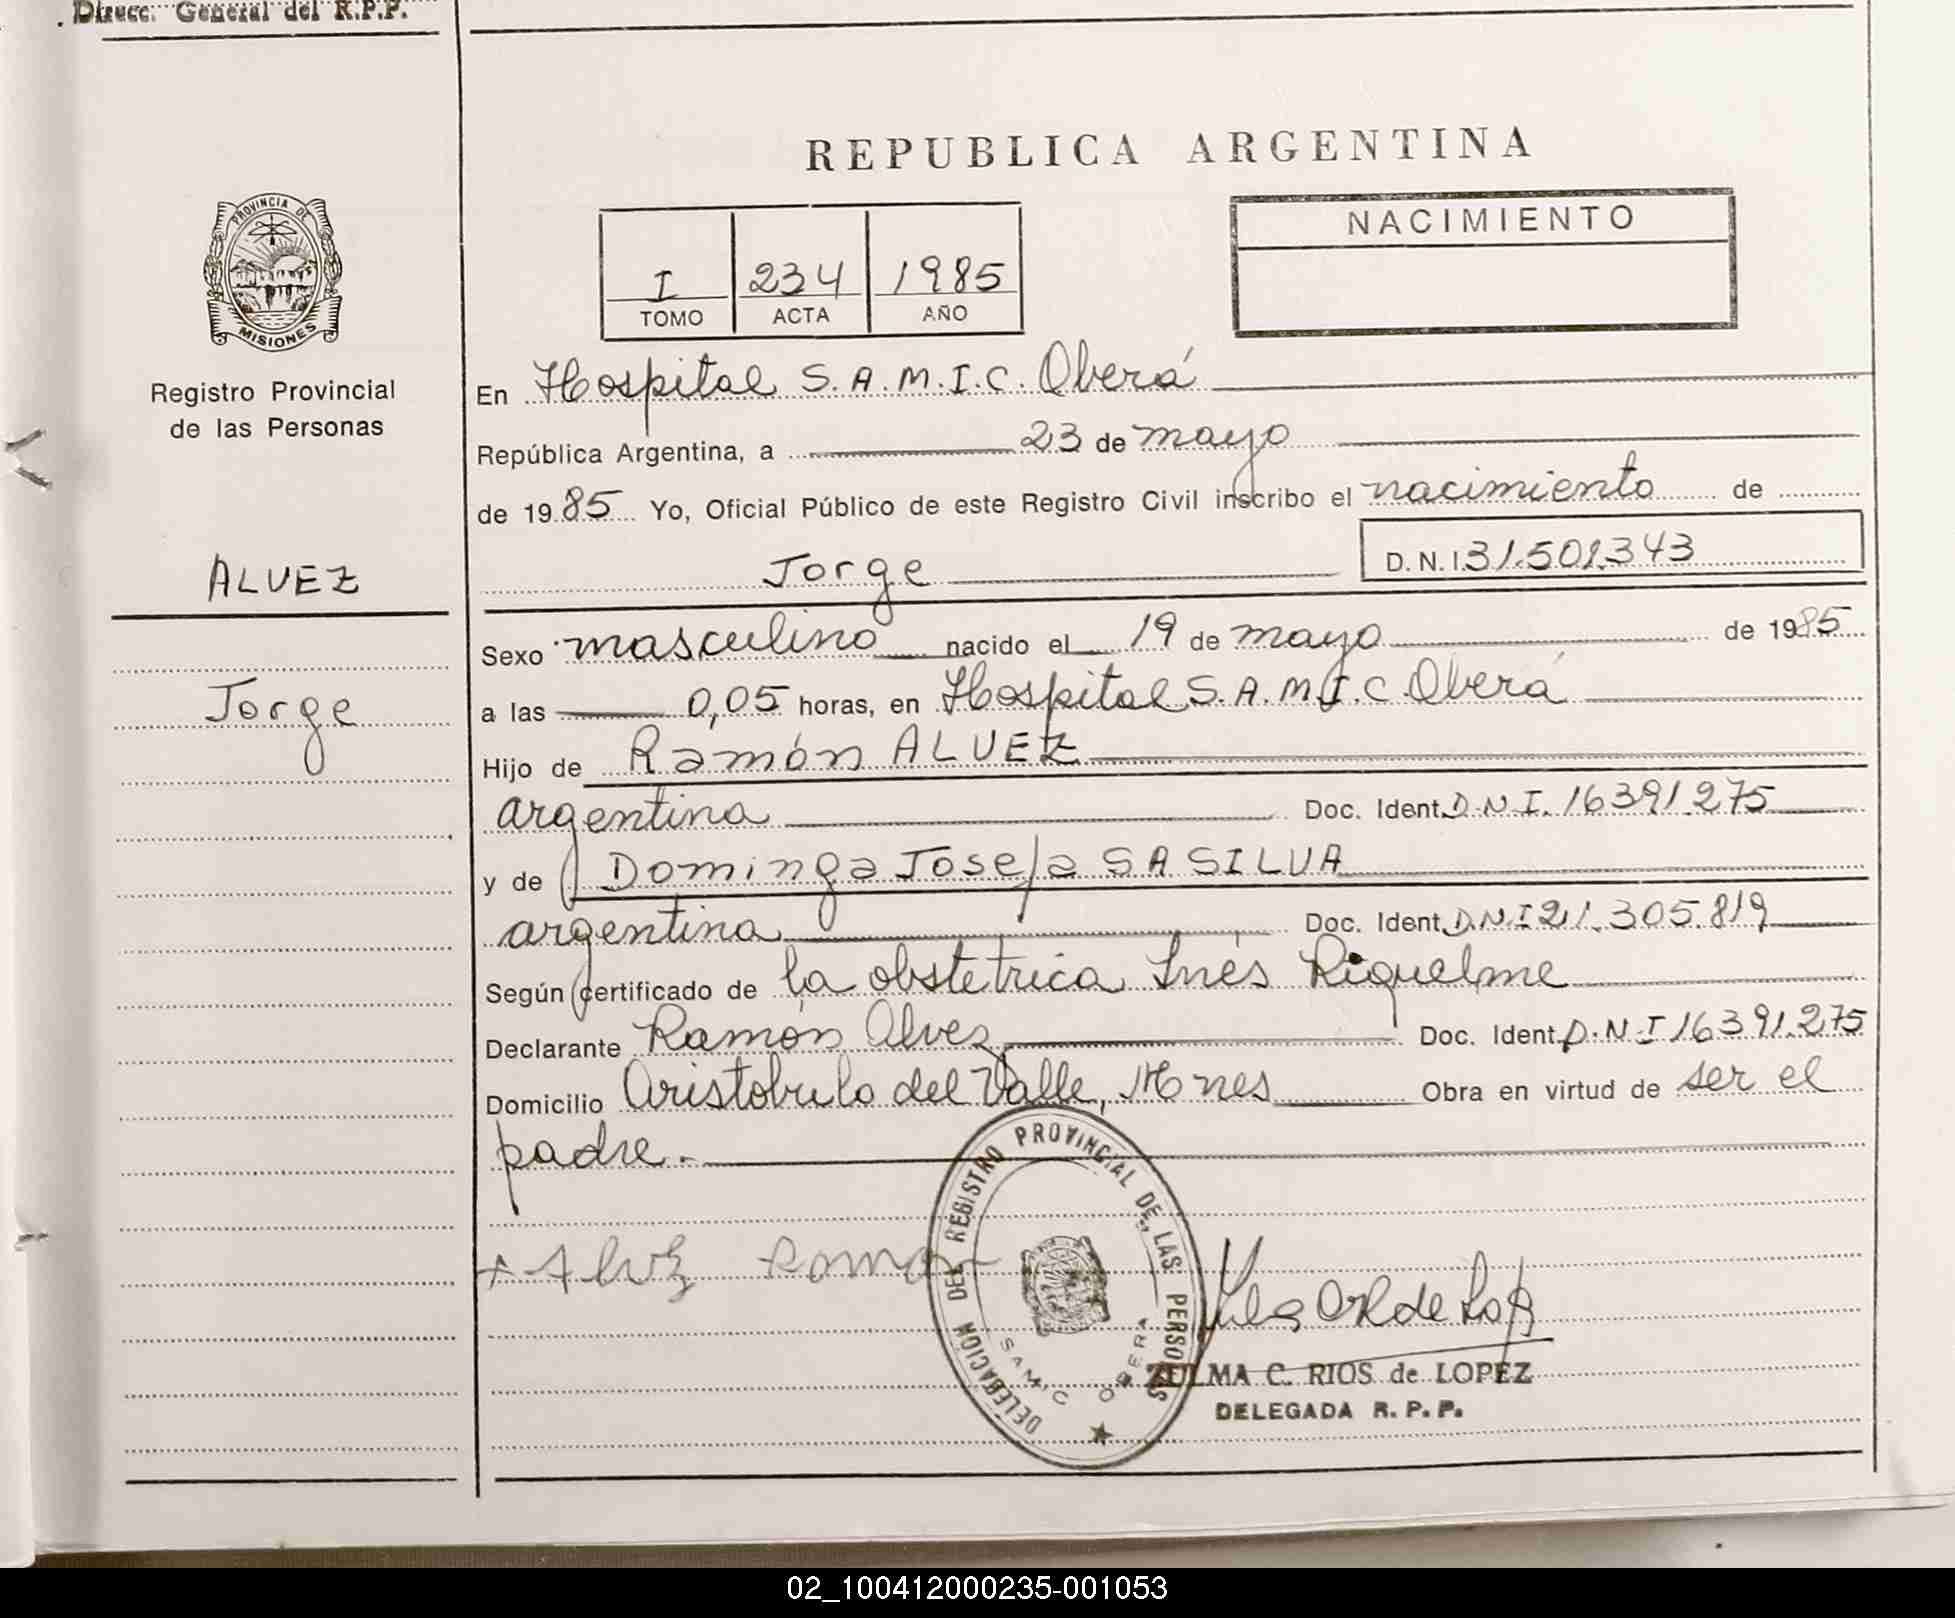 Direcc. General del R.P.P.
REPUBLICA ARGENTINA
PROVINCIA DE
MISIONES
Registro Provincial
de las Personas
ALVEZ
Jorge
I 234 1985
TOMO ACTA AÑO
NACIMIENTO
En Hospital S.A.M.I.C. Oberá
República Argentina, a 23 de mayo
de 1985 Yo, Oficial Público de este Registro Civil inscribo el nacimiento de
Jorge D.N.I. 31.501.343
Sexo masculino nacido el 19 de mayo de 1985
a las 0,05 horas, en Hospital S.A.M.I.C. Oberá
Hijo de Ramón ALVEZ
argentina Doc. Ident. D.N.I. 16391.275
y de Dominga Josefa SASILVA
argentina Doc. Ident. D.N.I 21.305.819
Según certificado de la obstetrica Inés Riquelme
Declarante Ramón Alvez Doc. Ident. D.N.I 16391.275
Domicilio Aristobulo del Valle, Mnes Obra en virtud de ser el
padre.-
DELEGACION DEL REGISTRO PROVINCIAL DE LAS PERSONAS
SAMIC OBERA
ZULMA C. RIOS de LOPEZ
DELEGADA R.P.P.
02_100412000235-001053